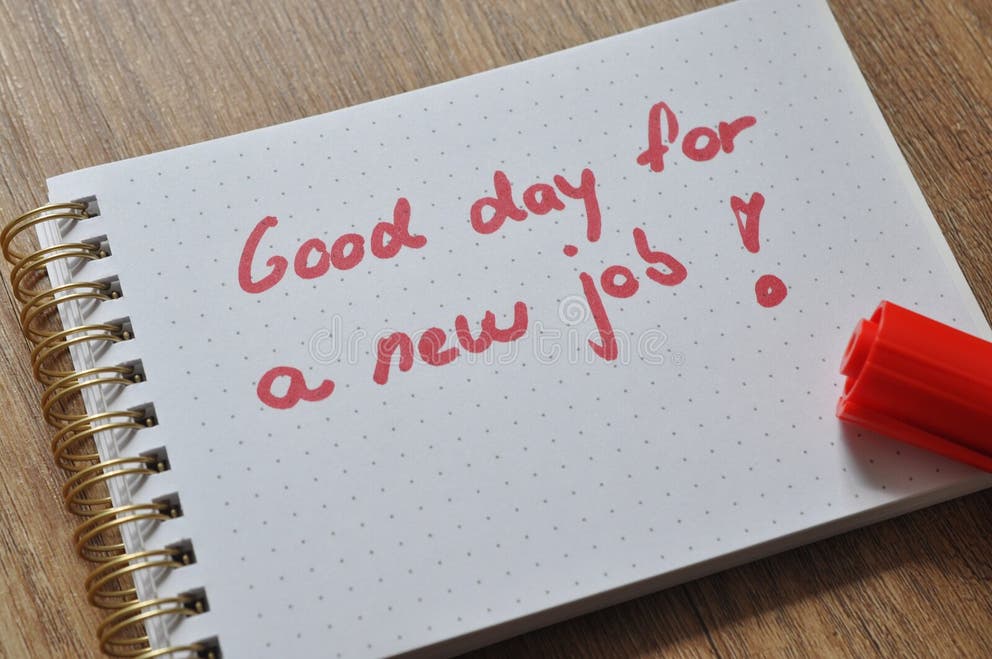 Good day for
a new job!
dreamstime